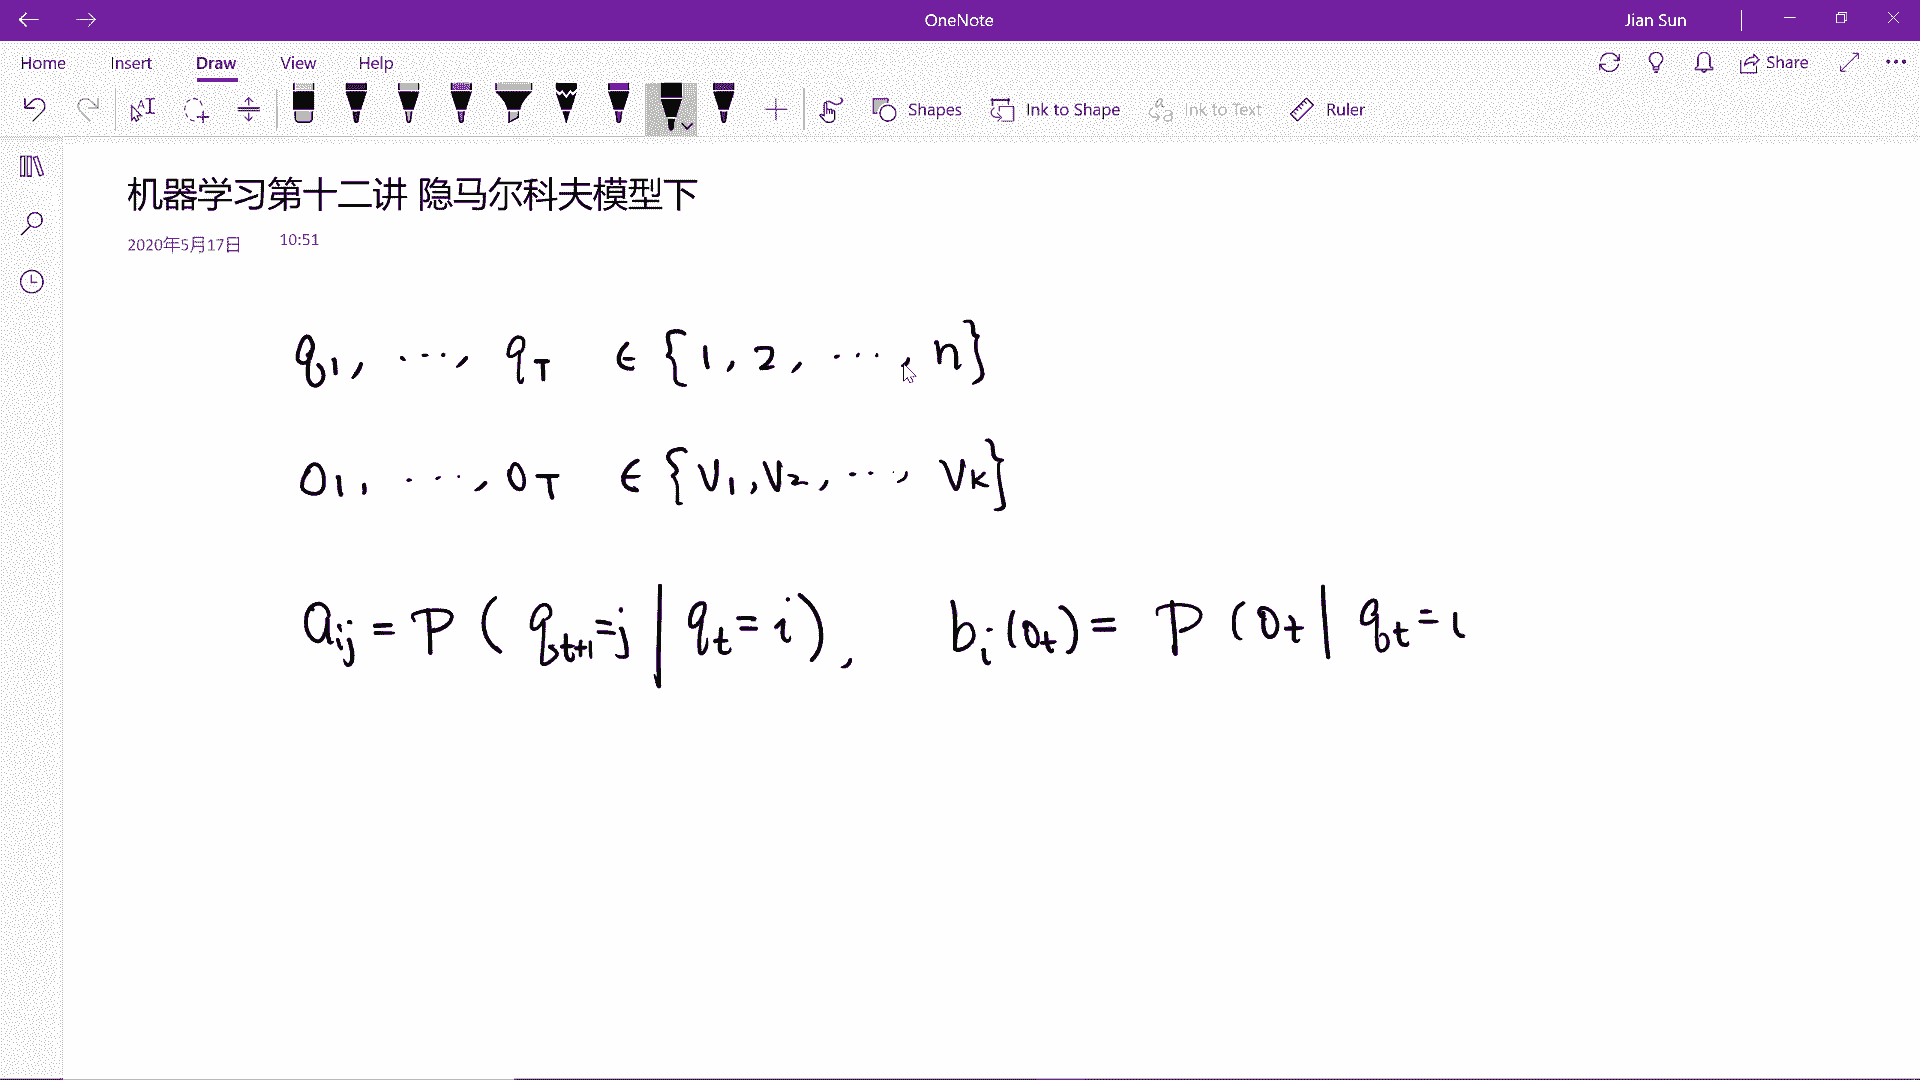 OneNote
Jian Sun
Home Insert Draw View Help
Share
Shapes Ink to Shape Ink to Text Ruler
机器学习第十二讲 隐马尔科夫模型下
2020年5月17日 10:51
q₁, ..., q_T ∈ {1, 2, ..., n}
O₁, ..., O_T ∈ {V₁, V₂, ..., V_K}
a_ij = P(q_t+1 = j | q_t = i), b_i(O_t) = P(O_t | q_t = i